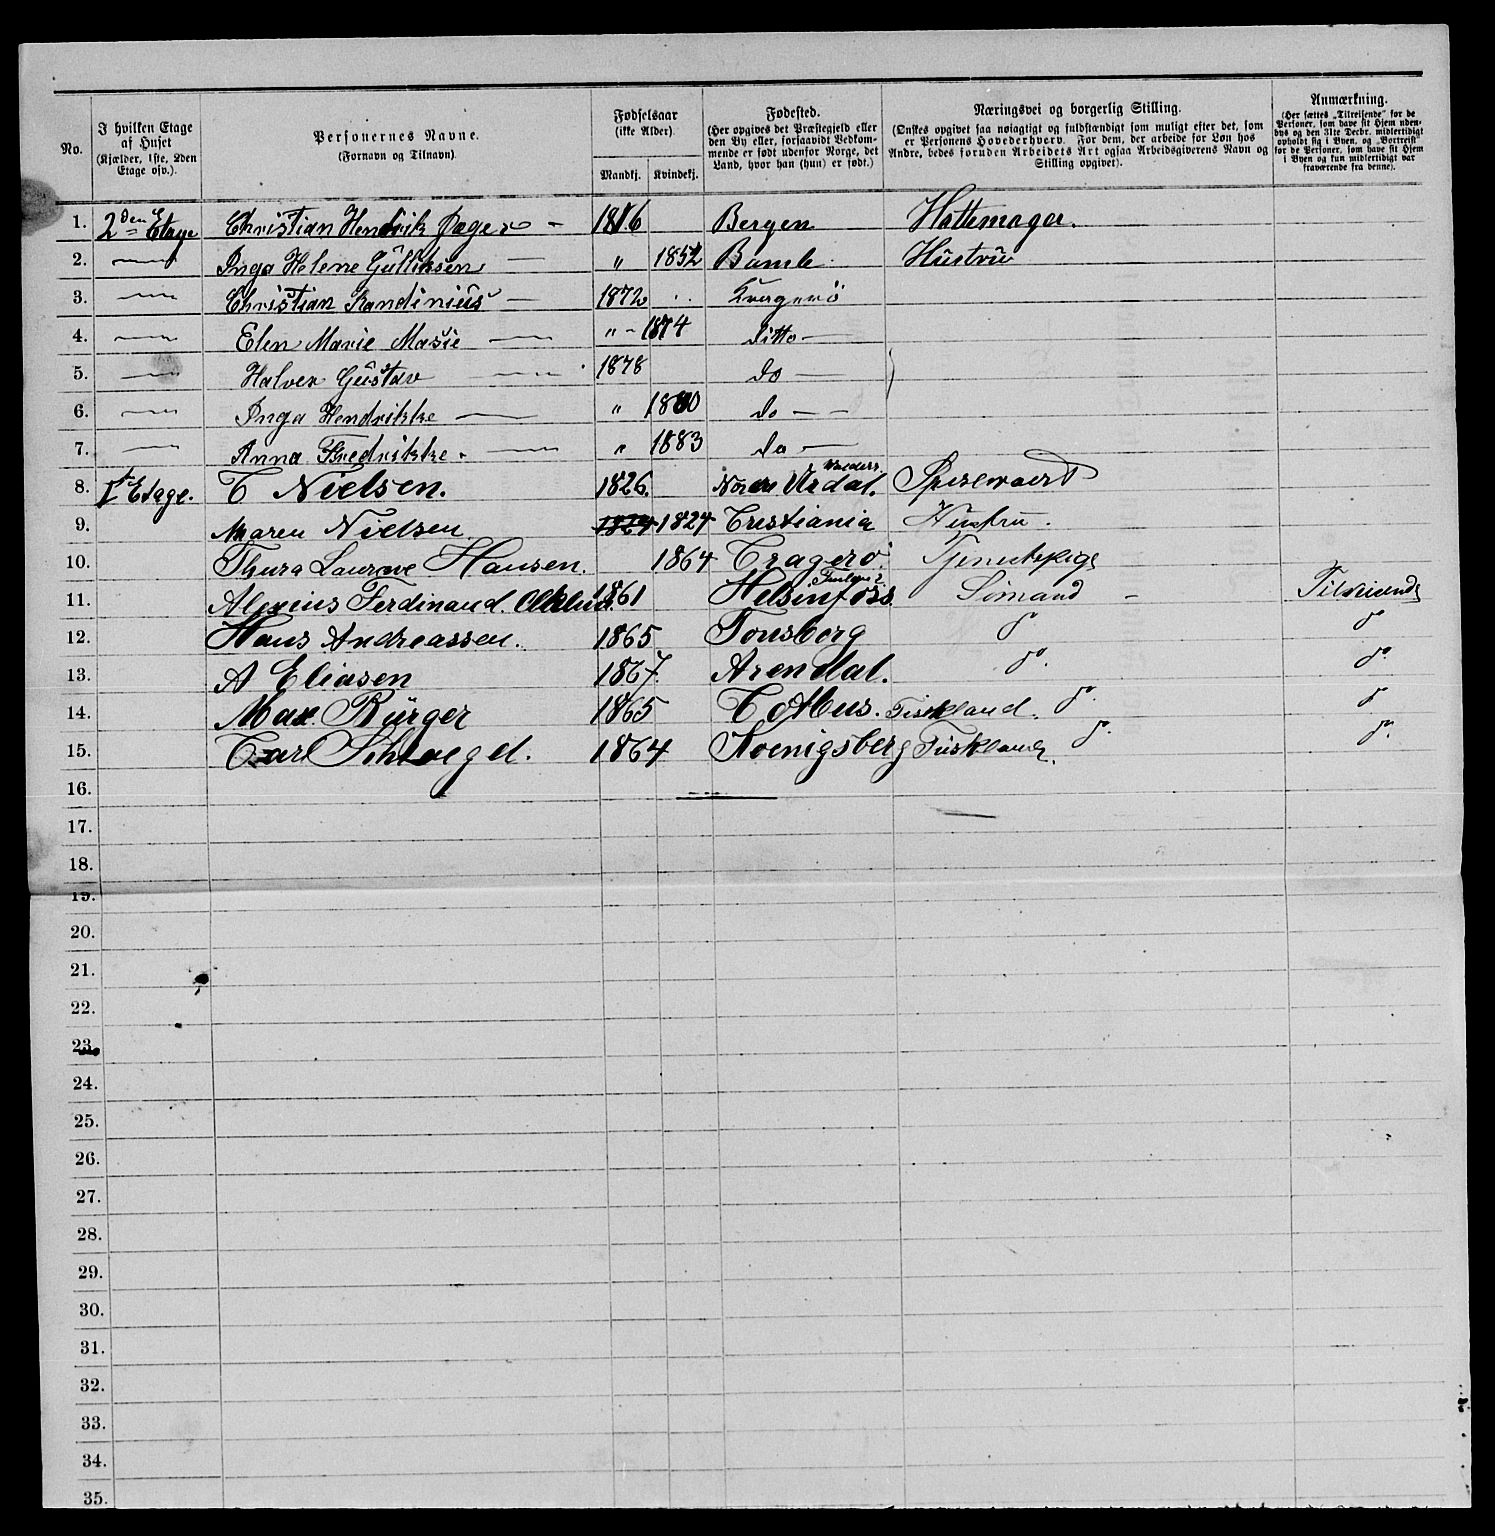 No.
I hvilken Etage
af Huset
(Kjælder, 1ste, 2den
Etage osv.).
Personernes Navne.
(Fornavn og Tilnavn)
Fødselsaar
(ikke Alder)
Mandkj. Kvindekj.
Fødested.
(Her opgives det Præstegjeld eller
den By eller, forsaavidt Vedkom-
mende er født udenfor Norge, det
Land, hvor han (hun) er født.)
Næringsvei og borgerlig Stilling.
(Ønskes opgivet saa nøiagtigt og fuldstændigt som muligt efter det, som
er Personens Hovederhverv. For dem, der arbeide for Løn hos
Andre, bedes foruden Arbeidets Art ogsaa Arbeidsgiverens Navn og
Stilling opgivet).
Anmærkning.
(Her sættes „Tilreisende“ for de
Personer, som have sit Hjem uden-
bys og den 31te Decbr. midlertidigt
opholdt sig i Byen, og „Bortreist“
for de Personer, som have sit Hjem
i Byen og kun midlertidigt var
fraværende fra denne).
1. 2den Etage Christian Hendrik Jæger — 1816 Bergen Hattemager.
2. — Inga Helene Gulliksen — „ 1852 Bamle Hustru
3. — Christian Randinius — 1872 Kragerø
4. — Elen Marie Masie — „ - 1874 ditto —
5. — Halver Gustav — 1878 do —
6. — Inga Hendrikke — „ 1880 do — —
7. — Anna Fredrikke. — „ 1883 do —
8. 1ste Etage. C Nielsen. 1826. Nordre Urdal. Valders Spisevært
9. Maren Nielsen 1824 1824 Cristiania Hustru.
10. Thura Laurine Hansen. 1864 Cragerø. Tjenestepige
11. Alexius Ferdinand 1861 Helsinfoss Sømand - Tilreisende
12. Hans Andreassen. 1865 Tonsberg do do
13. A Eliasen 1867. Arendal. do. do.
14. Max Rürger 1865 Cottbus. Tiskland. do. do
15. Carl Schloegel. 1864 Koenigsberg Tüskland. do. do.
16.
17.
18.
19.
20.
21.
22.
23.
24.
25.
26.
27.
28.
29.
30.
31.
32.
33.
34.
35.